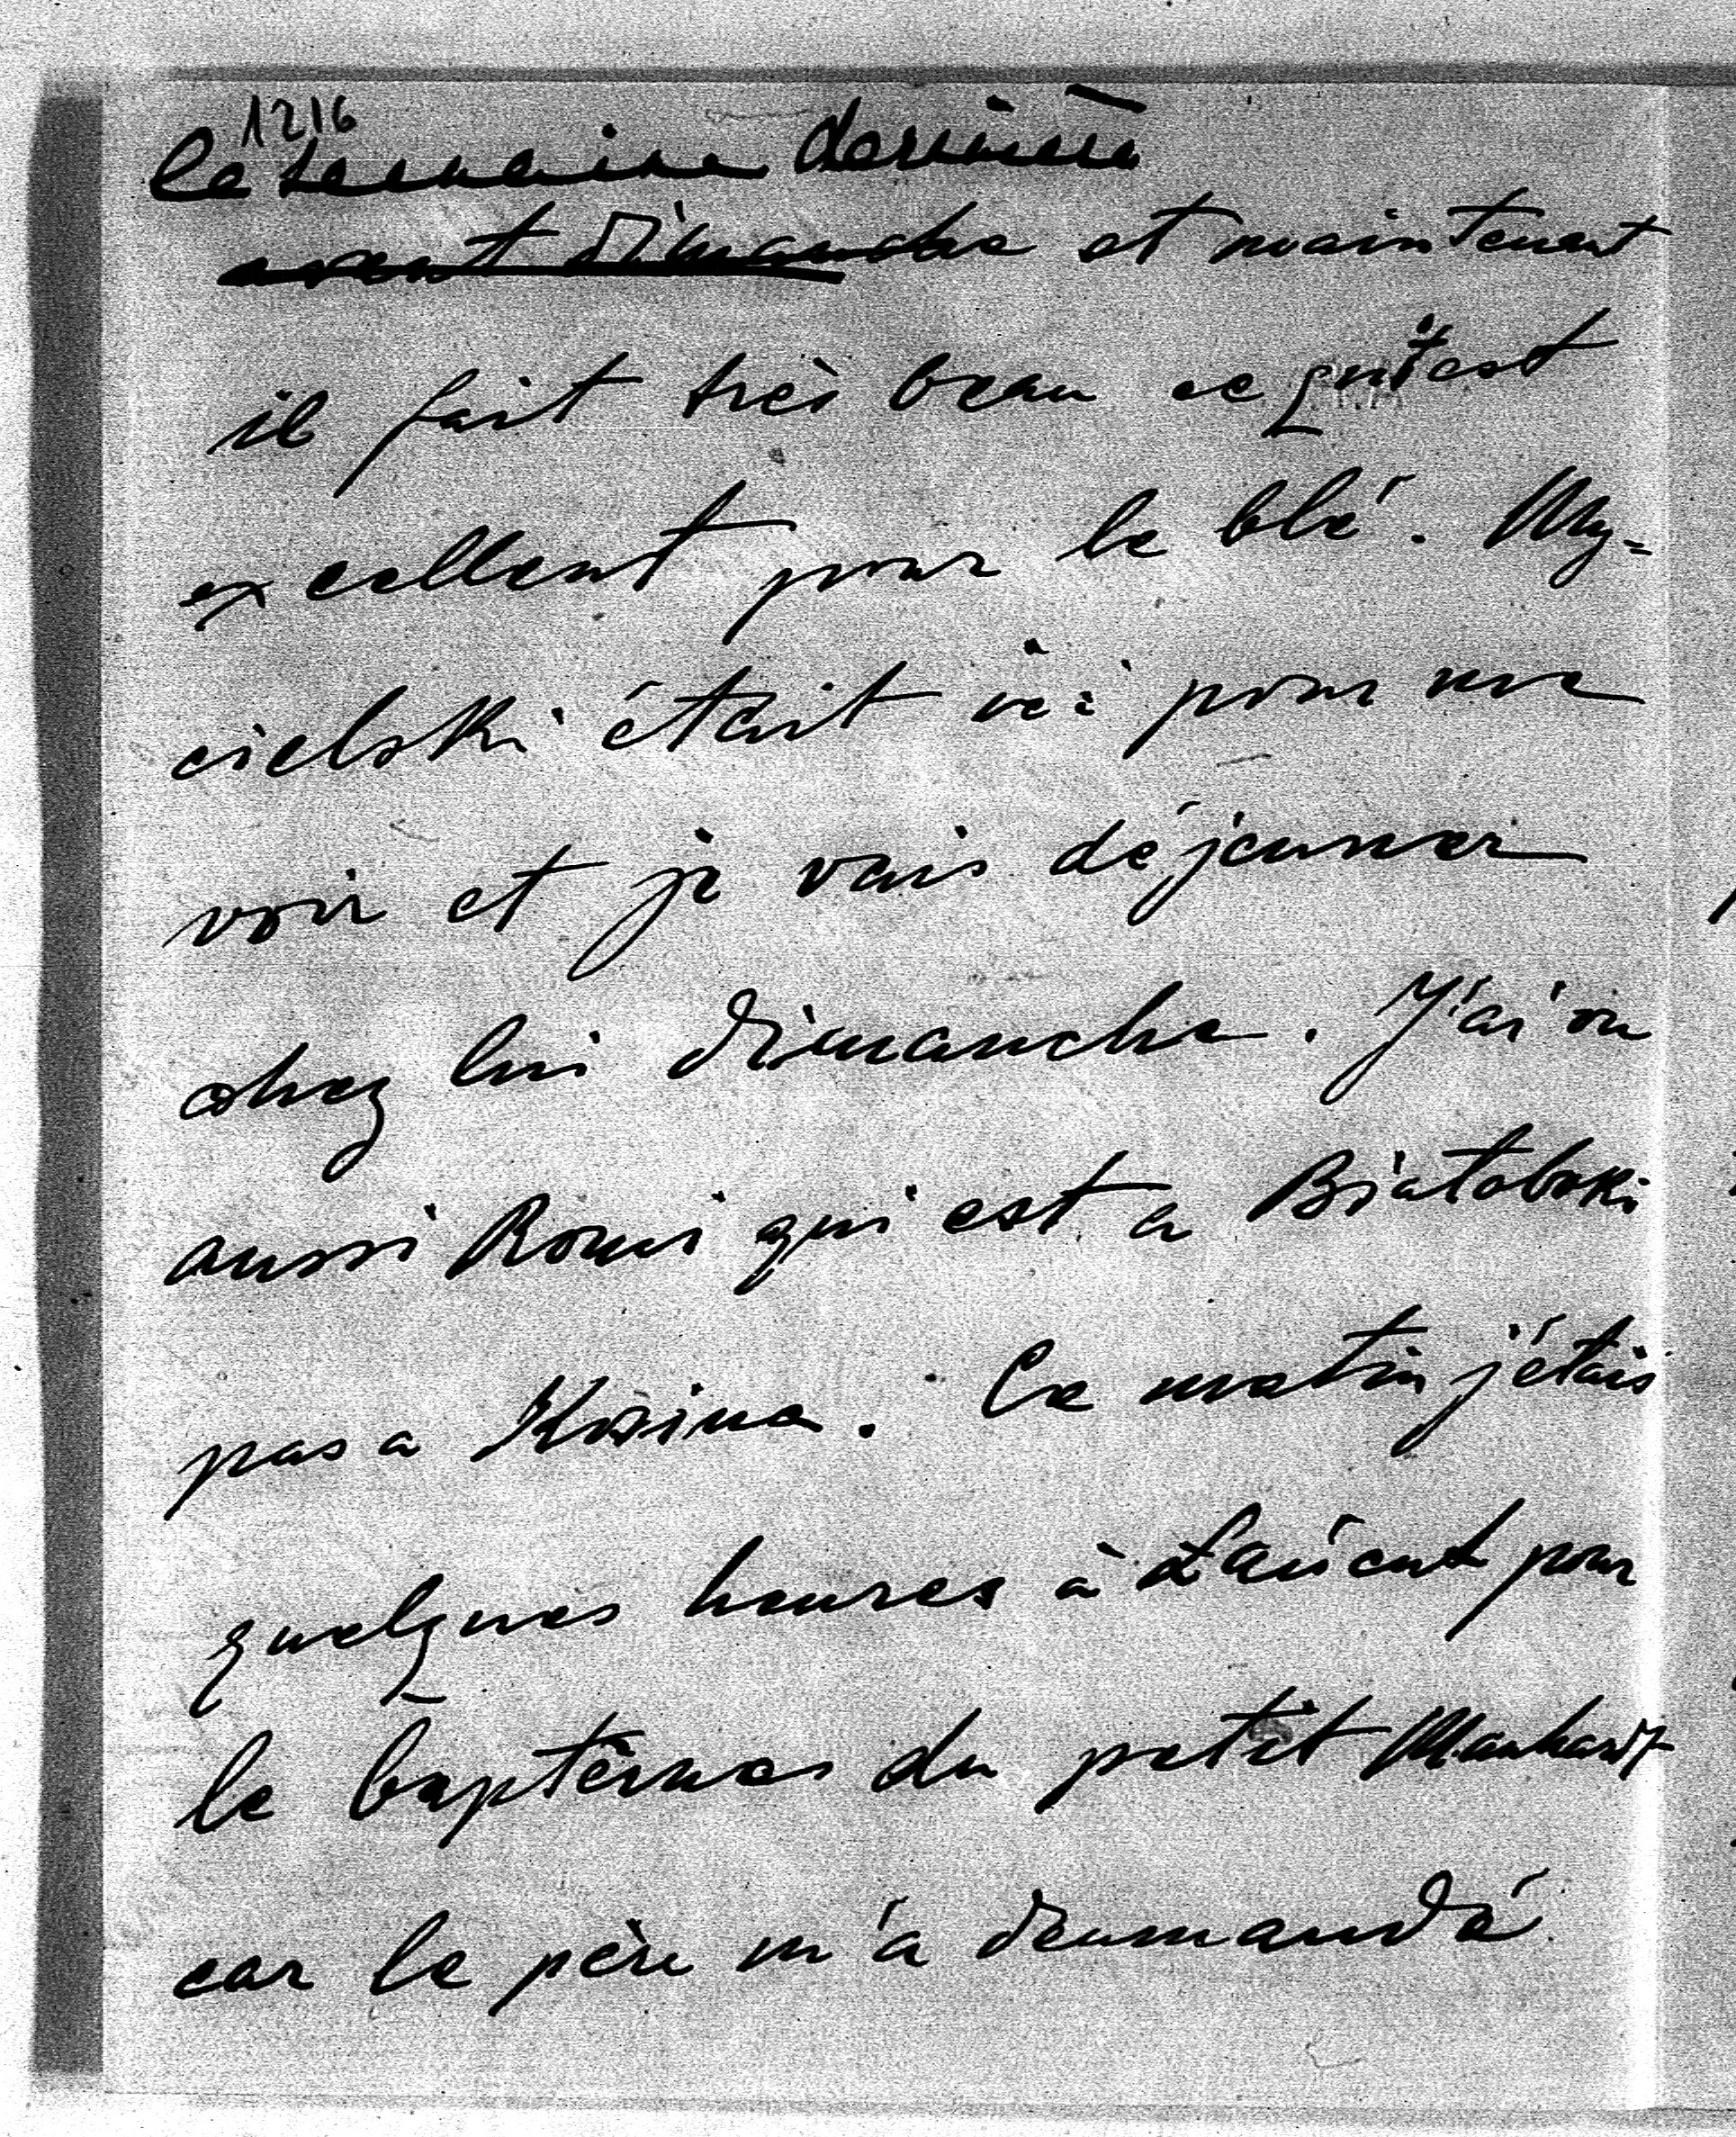 1216
la semaine dernière
avant dimanche et maintenant
il fait très beau ce qui est
excellent pour le blé. My=
cielski était ici pour me
voir et je vais déjeuner
chez lui dimanche. J'ai vu
aussi Romi qui est a
pas a. Ce matin j'étais
quelques heures à Łańcut pour
le baptêmes du petit
car le père m'a deumandé